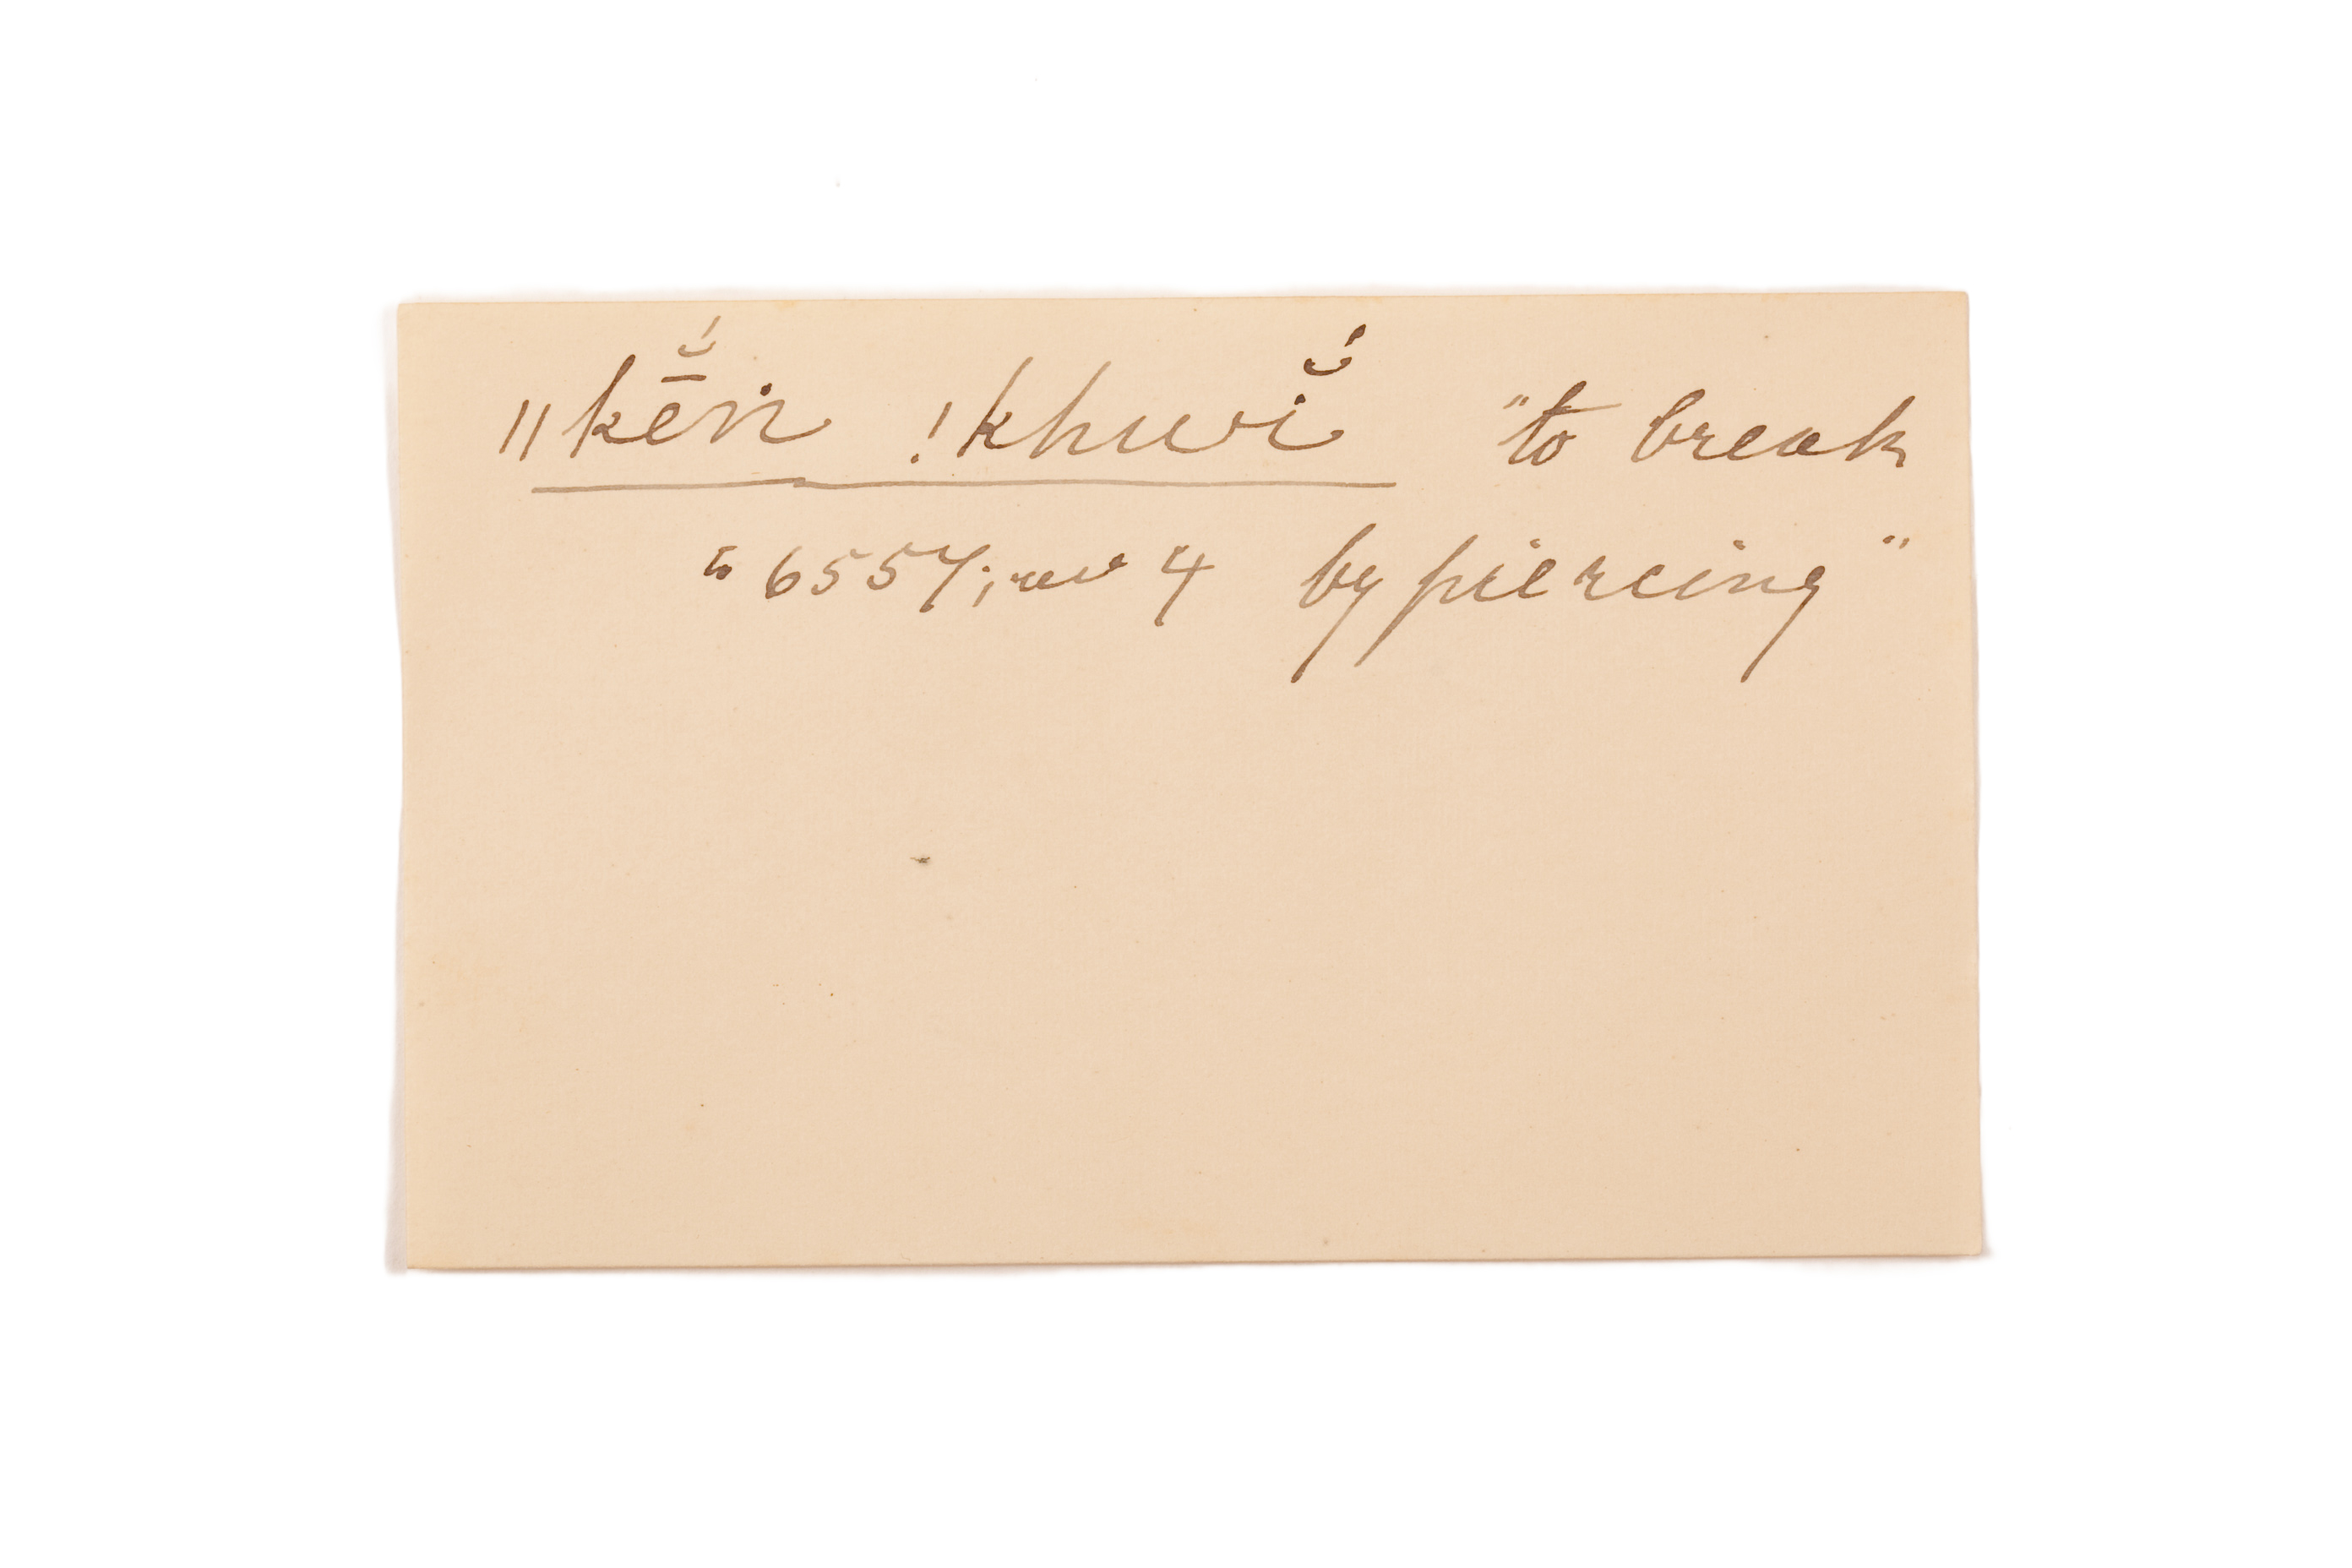 ǁkē̆́ṅ !khwĭ́ "to break
6557; rev 4 by piercing"